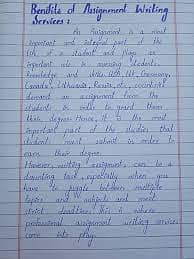 Benifits of Assignment Writing
Services :
An Assignment is a most
important and integral part of the
life of a student and plays an
important role in assessing students
Knowledge and skills. USA, UK, Germany,
Canada, Lithuania, Russia, etc, countries
demand an assignment from the
students in order to grant them
their degree. Hence, it is the most
important part of the studies that
students must submit in order to
earn their degree.
However, writing assignments can be a
daunting task, especially when you
have to juggle between multiple
topics and subjects and meet
strict deadlines. This is where
professional assignment writing services
come into play.